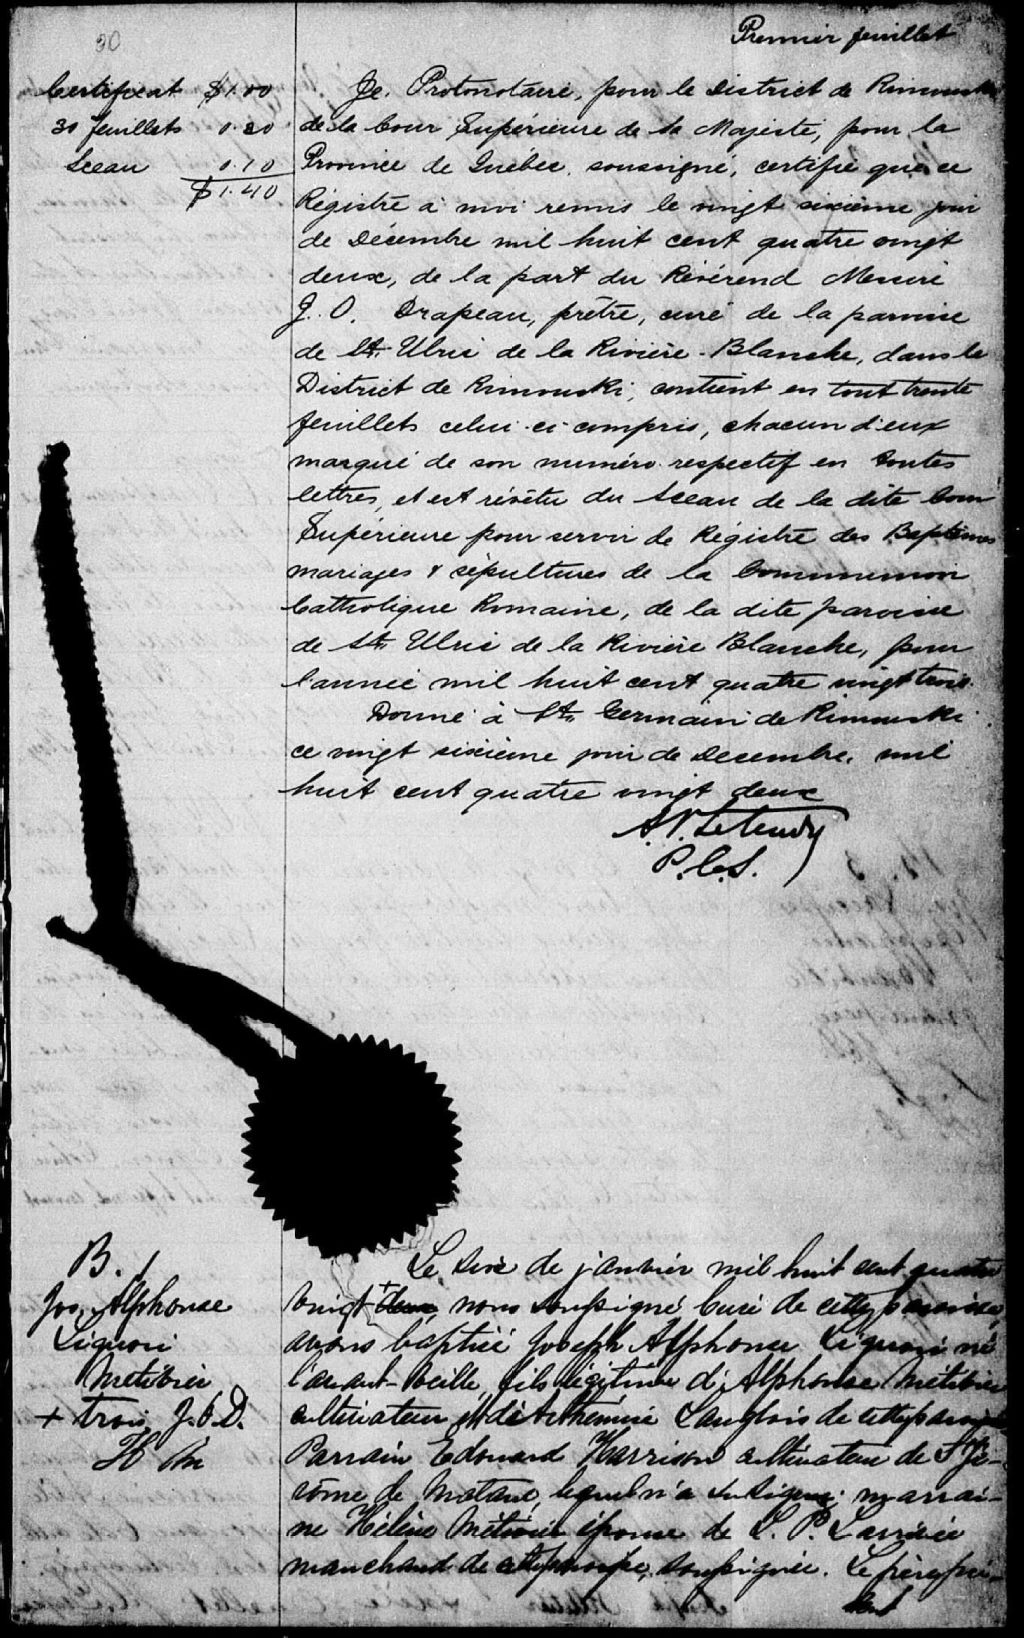 30
Premier feuillet
Certificat $1.00
30 feuillets 0.30
Sceau 0.10
$1.40
Je, Protonotaire, pour le District de Rimouski
de la Cour Supérieure de Sa Majesté, pour la
Province de Québec, soussigné, certifie que ce
Régistre à moi remis le vingt sixième jour
de Décembre mil huit cent quatre vingt
deux, de la part du Révérend Messire
J. O. Drapeau, prêtre, curé de la paroisse
de St. Ulric de la Rivière-Blanche, dans le
District de Rimouski, contient en tout trente
feuillets celui-ci compris, chacun d'eux
marqué de son numéro respectif en toutes
lettres, et est révêtu du Sceau de la dite Cour
Supérieure pour servir de Régistre des Baptêmes
mariages & sépultures de la Communion
Catholique Romaine, de la dite paroisse
de St. Ulric de la Rivière Blanche, pour
l'année mil huit cent quatre vingt trois.
Donné à St. Germain de Rimouski
ce vingt sixième jour de Decembre, mil
huit cent quatre vingt deux
P.C.S.
B. 1
Jos. Alphonse
Liguori
Métivier
+ trois J.O.D.
Le six de janvier mil huit cent quatre
vingt + deux, nous soussigné Curé de cette paroisse,
avons baptisé Joseph Alphonse Liguori né
l'avant-veille, fils légitime d'Alphonse Métivier
cultivateur et de Arthémise Langlois de cette paroisse
Parrain Edouard Harrison cultivateur de St Jé-
rôme de Matane, lequel n'a su signer; marrai-
ne Hélène Métivier épouse de L. P. Larrivée
marchand de cette paroisse, soussignée. Le père pré-
sent